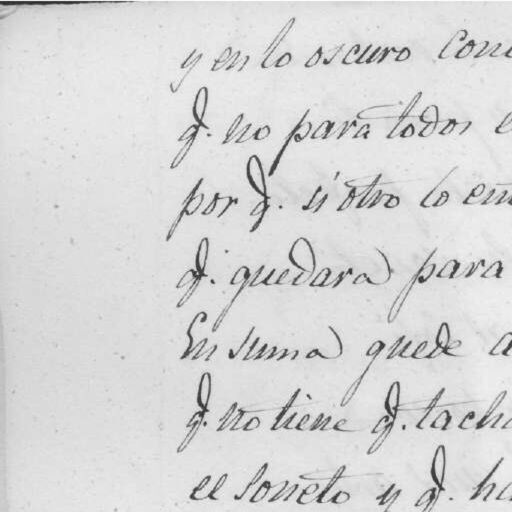 y en lo oscuro con
q. no para todos e
por q. si otro lo en
q. quedara para
En suma quede a
q. no tiene q. tach
el soneto y q. ha